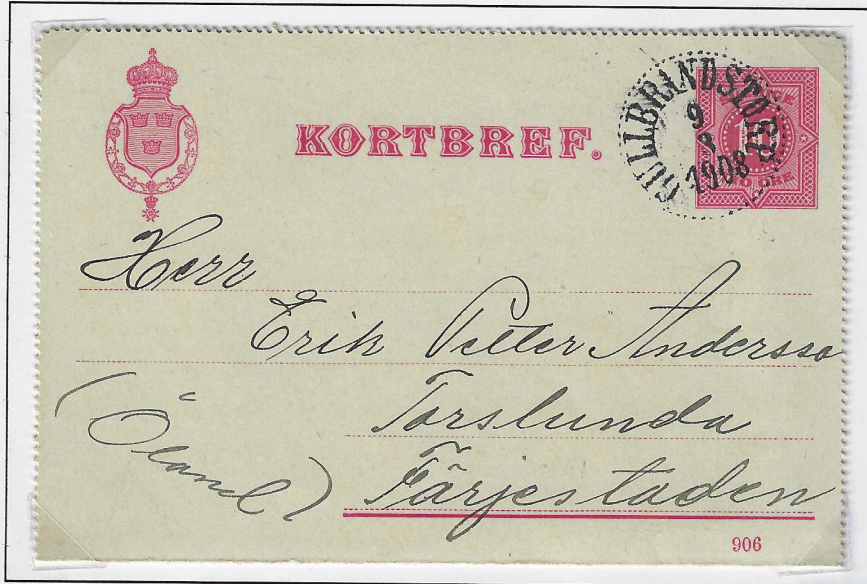 KORTBREF.
GULLBRANDSTORP
9
8
1908
10
Herr
Erik Petter Andersso
Torslunda
(Öland) Färjestaden
906